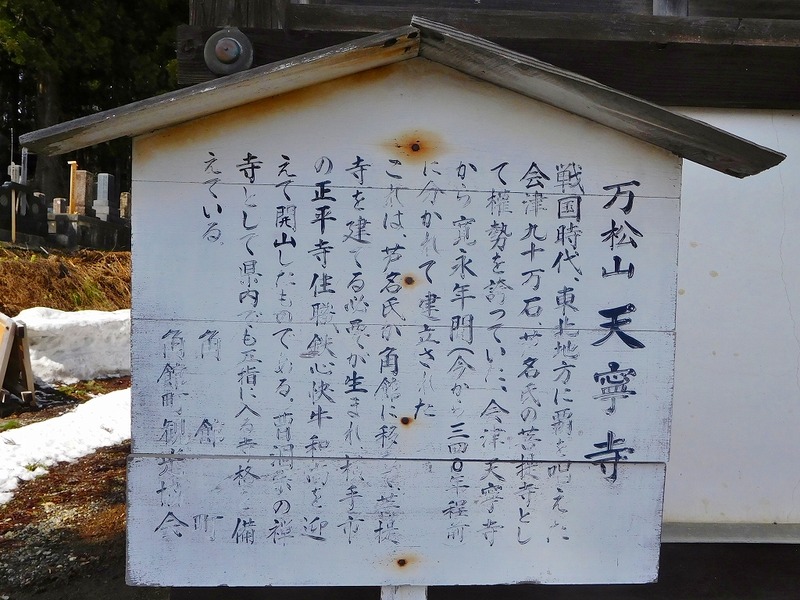 万松山 天寧寺
戦国時代、東北地方に覇を唱えた
会津九十万石、芦名氏の菩提寺とし
て権勢を誇っていた、会津天寧寺
から寛永年間(今から三四〇年程前
に分かれて建立された
これは芦名氏が角館に移って菩提
寺を建てる必要が生まれ横手市
の正平寺住職鉄心快牛和尚を迎
えて開山したものである。曹洞宗の禅
寺として県内でも五指に入る寺格を備
えている。
角館町
角館町観光協会